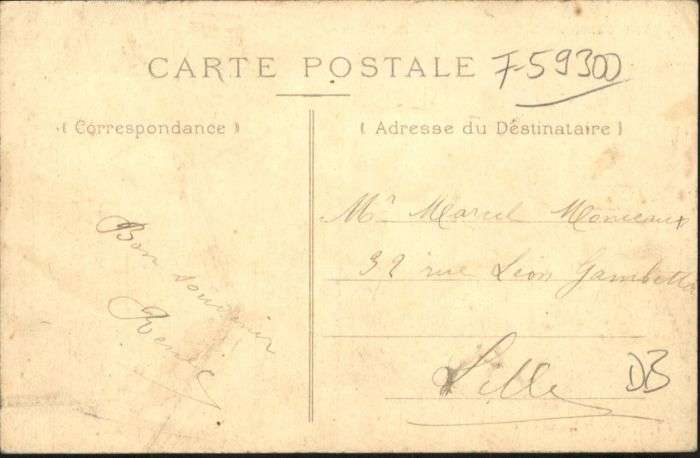 CARTE POSTALE
F-59300
( Correspondance )
( Adresse du Déstinataire )
Bon souvenir
Mr Marcel Monceaux
32 rue Léon Gambetta
Lille
DB